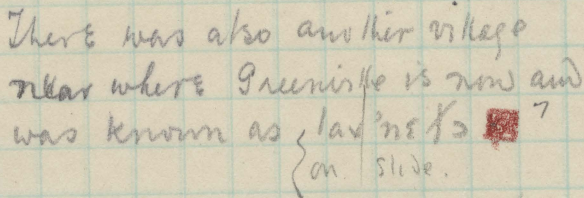 There was also another village
near where Greenville is now and
was known as
on slide.